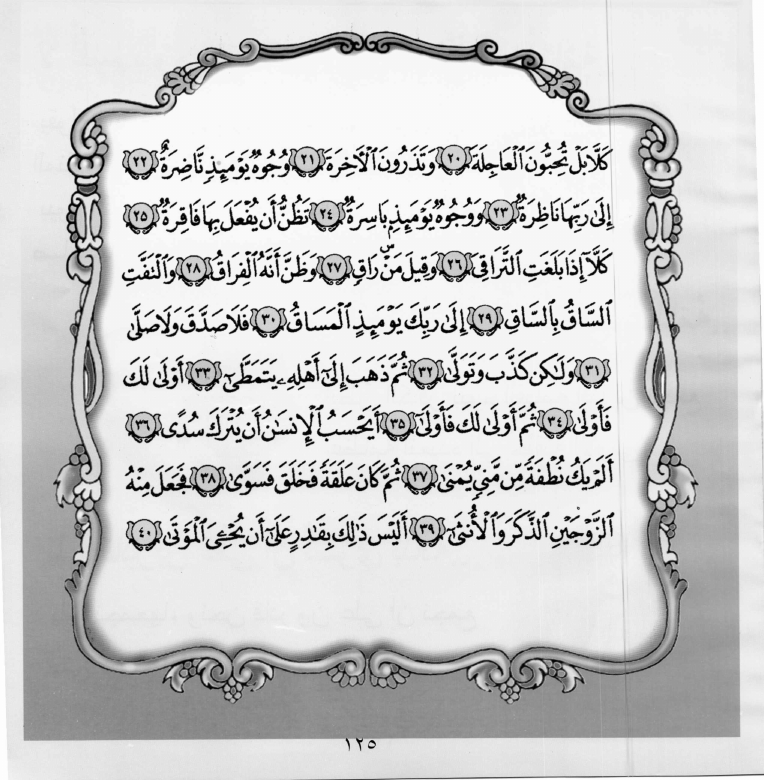 كَلَّا بَلْ تُحِبُّونَ ٱلْعَاجِلَةَ ٢٠ وَتَذَرُونَ ٱلْأَخِرَةَ ٢١ وُجُوهٌ يَوْمَئِذٍ نَّاضِرَةٌ ٢٢
إِلَىٰ رَبِّهَا نَاظِرَةٌ ٢٣ وَوُجُوهٌ يَوْمَئِذٍۭ بَاسِرَةٌ ٢٤ تَظُنُّ أَن يُفْعَلَ بِهَا فَاقِرَةٌ ٢٥
كَلَّآ إِذَا بَلَغَتِ ٱلتَّرَاقِىَ ٢٦ وَقِيلَ مَنْۜ رَاقٍ ٢٧ وَظَنَّ أَنَّهُ ٱلْفِرَاقُ ٢٨ وَٱلْتَفَّتِ
ٱلسَّاقُ بِٱلسَّاقِ ٢٩ إِلَىٰ رَبِّكَ يَوْمَئِذٍ ٱلْمَسَاقُ ٣٠ فَلَا صَدَّقَ وَلَا صَلَّىٰ
٣١ وَلَٰكِن كَذَّبَ وَتَوَلَّىٰ ٣٢ ثُمَّ ذَهَبَ إِلَىٰٓ أَهْلِهِۦ يَتَمَطَّىٰٓ ٣٣ أَوْلَىٰ لَكَ
فَأَوْلَىٰ ٣٤ ثُمَّ أَوْلَىٰ لَكَ فَأَوْلَىٰٓ ٣٥ أَيَحْسَبُ ٱلْإِنسَٰنُ أَن يُتْرَكَ سُدًى ٣٦
أَلَمْ يَكُ نُطْفَةً مِّن مَّنِىٍّ يُمْنَىٰ ٣٧ ثُمَّ كَانَ عَلَقَةً فَخَلَقَ فَسَوَّىٰ ٣٨ فَجَعَلَ مِنْهُ
ٱلزَّوْجَيْنِ ٱلذَّكَرَ وَٱلْأُنثَىٰٓ ٣٩ أَلَيْسَ ذَٰلِكَ بِقَٰدِرٍ عَلَىٰٓ أَن يُحْۦِىَ ٱلْمَوْتَىٰ ٤٠
١٢٥